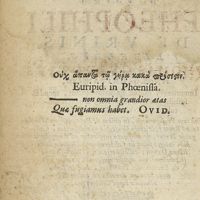 Οὐχ ἅπαντα τῷ γήρᾳ κακὰ πρόσεστιν.
Euripid. in Phœnissa.
non omnia grandior ætas
Quæ fugiamus habet. OVID.